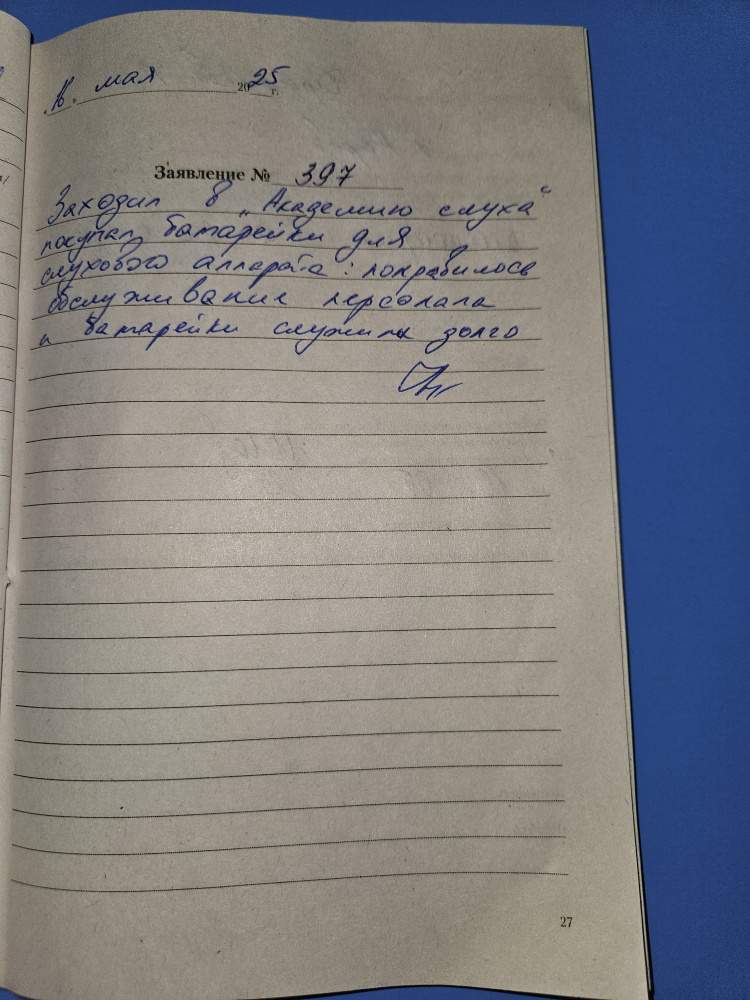 мая 2025 г.
Заявление № 397
Заходил в „Академию слуха“
покупал батарейки для
слухового аппарата: понравилось
обслуживание персонала
и батарейки служили долго
27